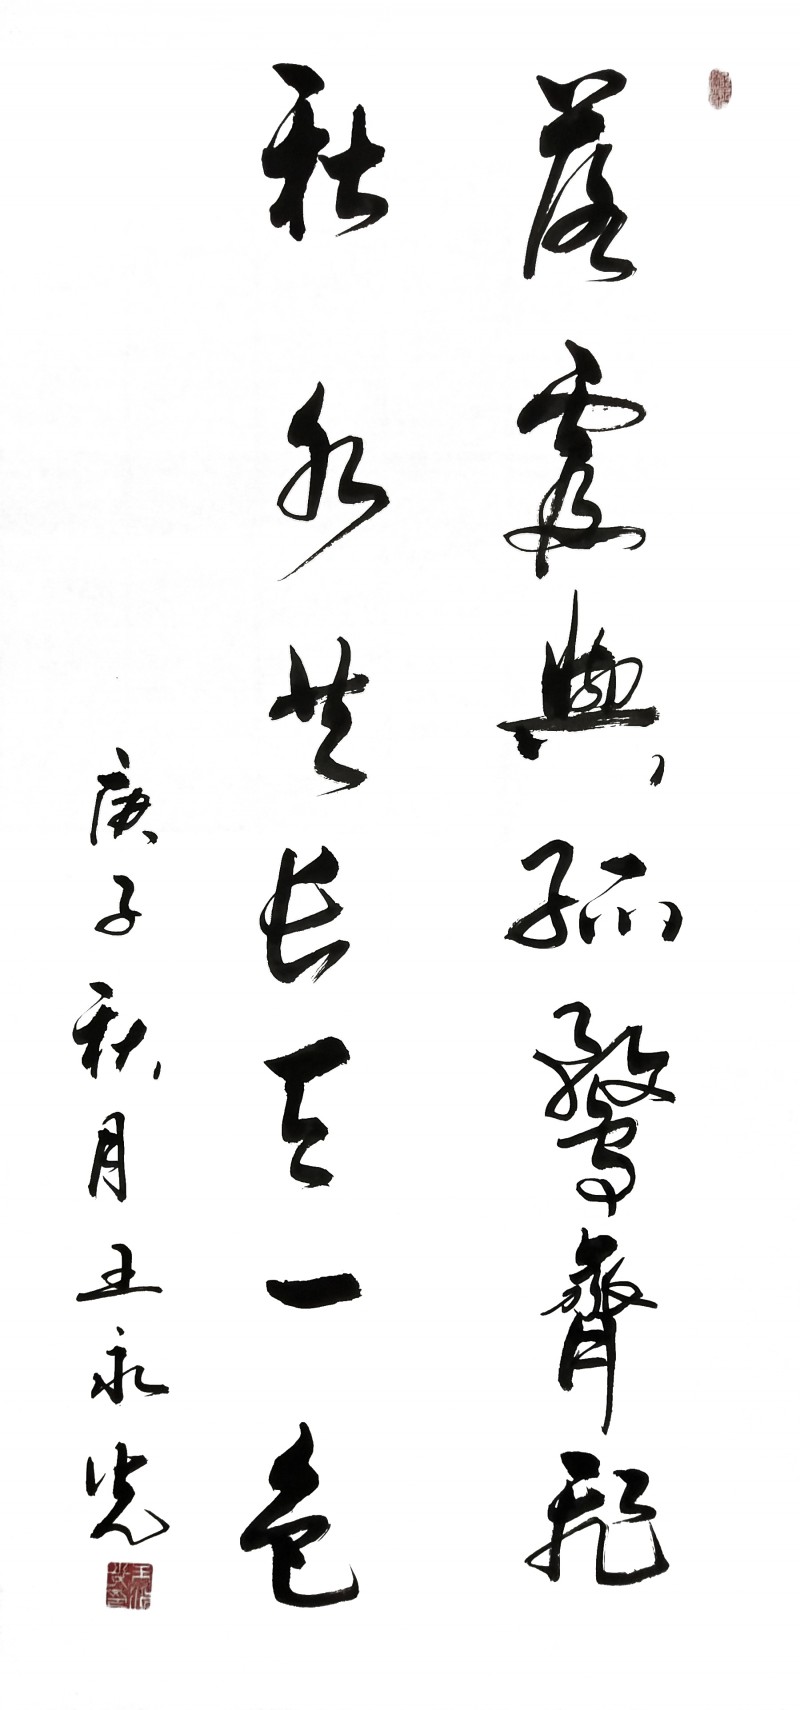 落霞与孤鹜齊飛
秋水共长天一色
庚子秋月王永光